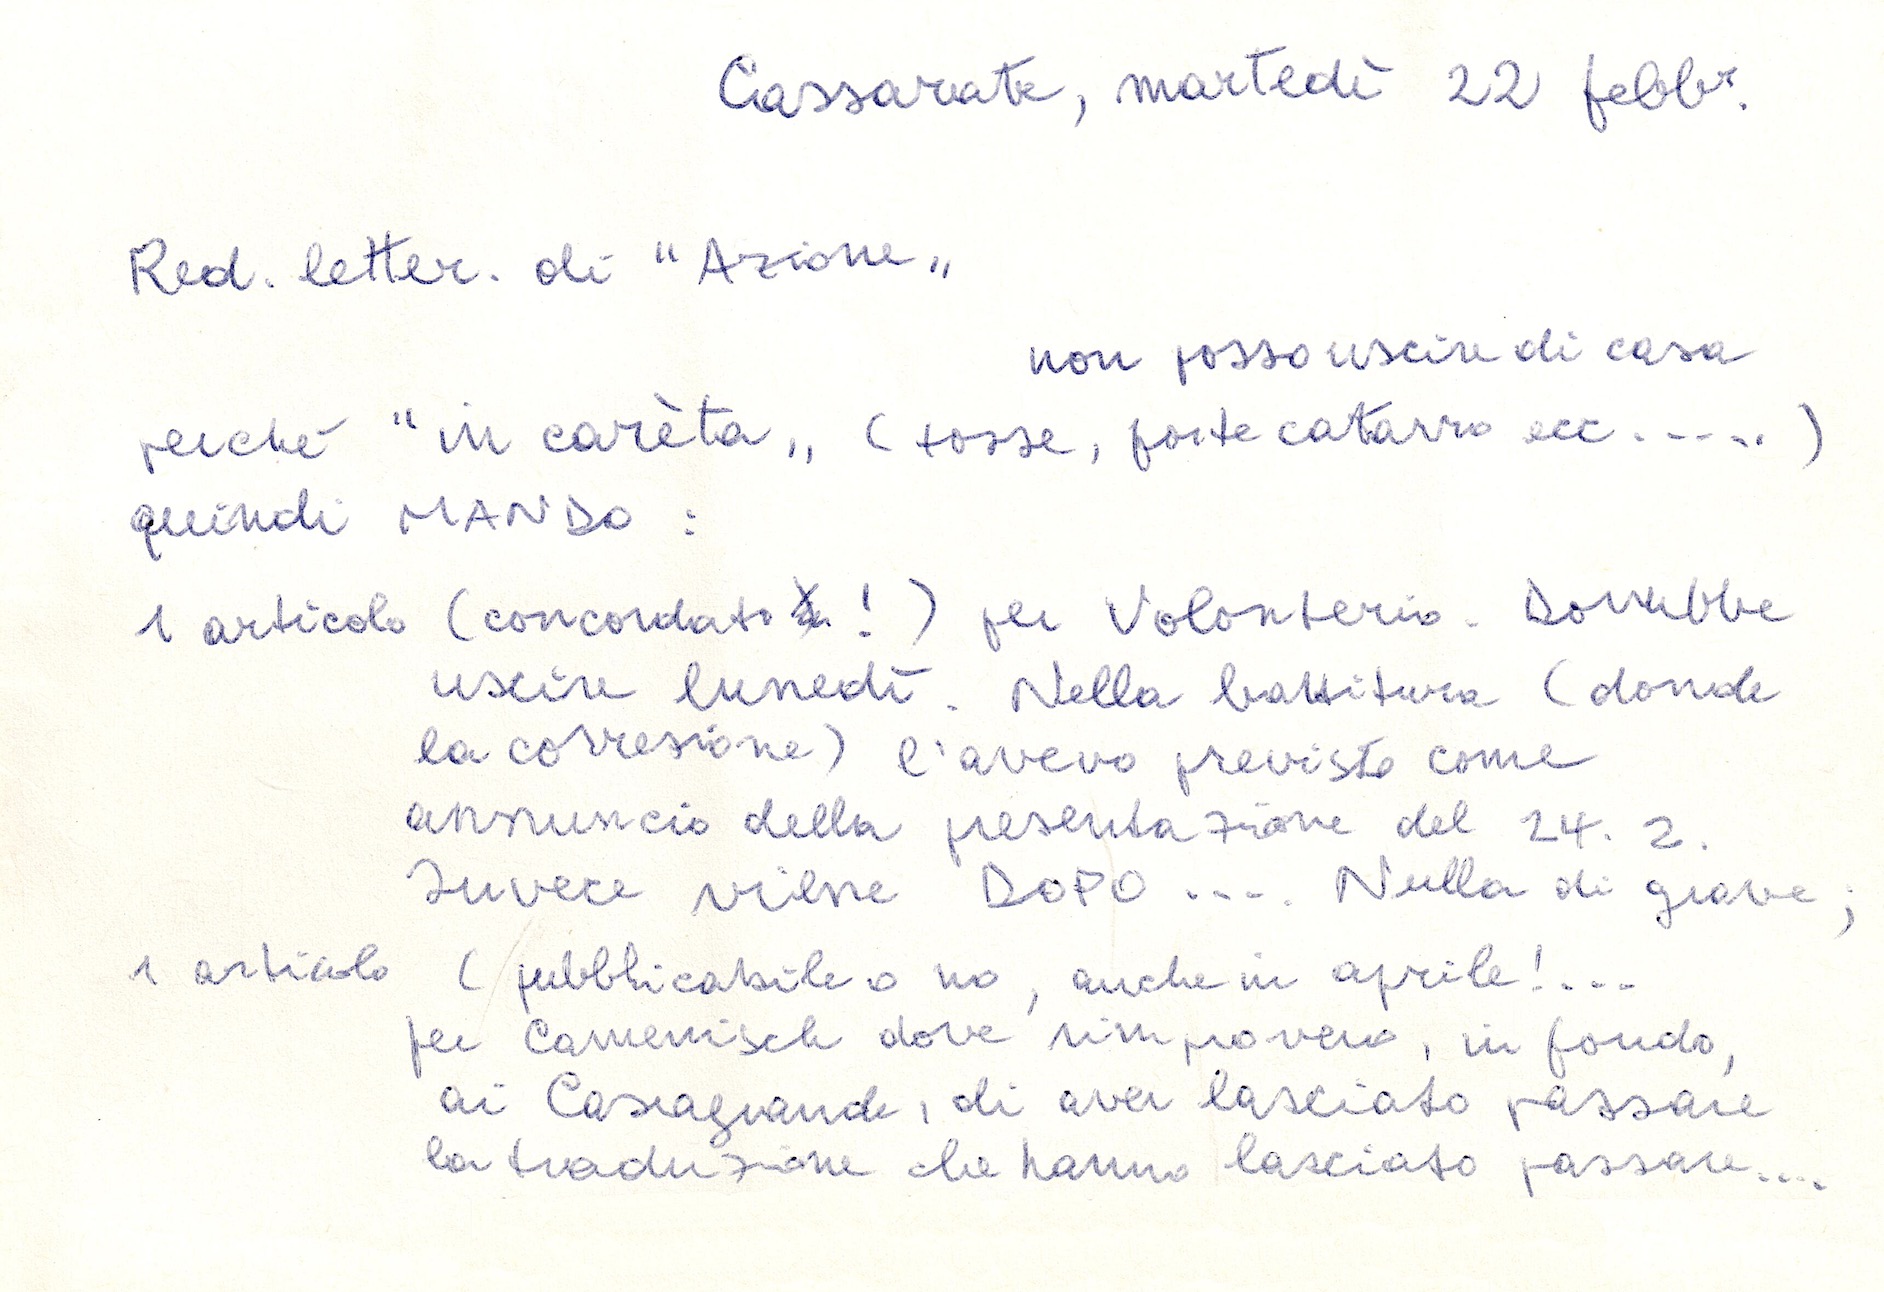 Cassarate, martedì 22 febbr.
Red. letter. di "Azione„
non posso uscire di casa
perché "in carèta„ (tosse, forte catarro ecc.....)
quindi MANDO :
1 articolo (concordato !) per Volonterio. Dovrebbe
uscire lunedì. Nella battitura (donde
la correzione) l'avevo previsto come
annuncio della presentazione del 24. 2.
Invece viene DOPO .... Nulla di grave ;
1 articolo (pubblicabile o no, anche in aprile!....
per Camenisch dove rimprovero, in fondo,
ai Casagrande, di aver lasciato passare
la traduzione che hanno lasciato passare....